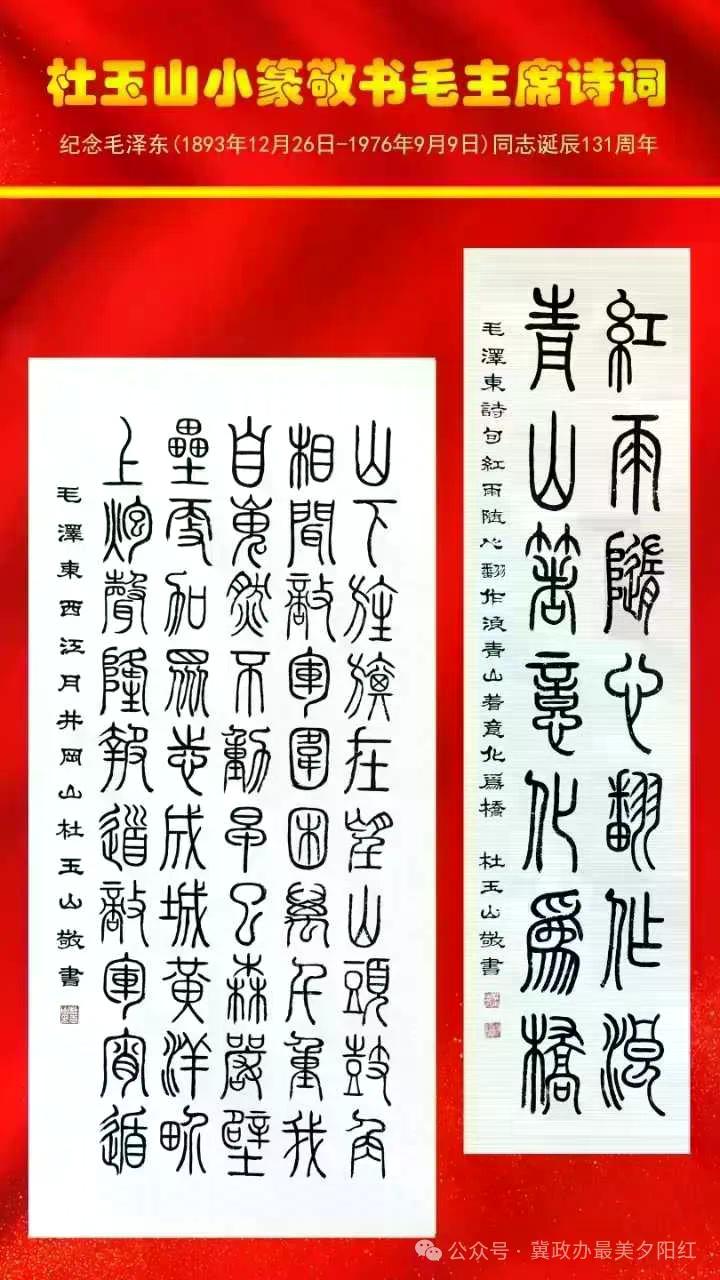 杜玉山小篆敬书毛主席诗词
纪念毛泽东(1893年12月26日-1976年9月9日)同志诞辰131周年
紅雨隨心翻作浪
青山箸意化爲橋
毛澤東詩句紅雨随心翻作浪青山着意化爲橋 杜玉山敬書
山下旌旗在望山頭鼓角
相聞敵軍圍困萬千重我
自巋然不動早已森嚴壁
壘更加眾志成城黃洋界
上炮聲隆報道敵軍宵遁
毛澤東西江月井岡山杜玉山敬書
公众号·冀政办最美夕阳红